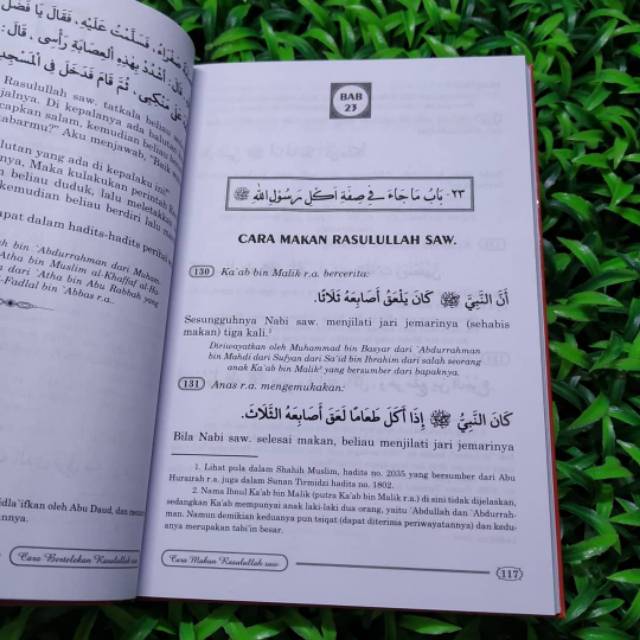 صَلْعَاءُ، فَسَلَّمْتُ عَلَيْهِ، فَقَالَ يَا فَضْلُ
قَالَ: اشْدُدْ بِهٰذِهِ الْعِصَابَةِ رَأْسِى، قَالَ:
عَلَى مَنْكِبِى، ثُمَّ قَامَ فَدَخَلَ فِى الْمَسْجِدِ
Rasulullah saw. tatkala beliau
Di kepalanya ada
salam, kemudian beliau
Aku menjawab, "Baik
yang ada di kepalaku ini!"
Maka kulakukan perintah
beliau duduk, lalu meletakkan
kemudian beliau berdiri lalu
dalam hadits-hadits
bin `Abdurrahman dari
bin Muslim al-Khaffaf
dari `Atha bin Abu Rabbah yang
-Fadlal bin `Abbas r.a.
oleh Abu Daud, dan
Cara Bertelekan Rasulullah
BAB
23
٢٣- بَابُ مَا جَاءَ فِي صِفَةِ أَكْلِ رَسُوْلِ اللهِ ﷺ
CARA MAKAN RASULULLAH SAW.
130 Ka`ab bin Malik r.a. bercerita:
أَنَّ النَّبِيَّ ﷺ كَانَ يَلْعَقُ أَصَابِعَهُ ثَلَاثًا.
Sesungguhnya Nabi saw. menjilati jari jemarinya (sehabis
makan) tiga kali.¹
Diriwayatkan oleh Muhammad bin Basyar dari `Abdurrahman
bin Mahdi dari Sufyan dari Sa`id bin Ibrahim dari salah seorang
anak Ka`ab bin Malik² yang bersumber dari bapaknya.
131 Anas r.a. mengemukakan:
كَانَ النَّبِيُّ ﷺ إِذَا أَكَلَ طَعَامًا لَعِقَ أَصَابِعَهُ الثَّلَاثَ.
Bila Nabi saw. selesai makan, beliau menjilati jari jemarinya
1. Lihat pula dalam Shahih Muslim, hadits no. 2035 yang bersumber dari Abu
Hurairah r.a. juga dalam Sunan Tirmidzi hadits no. 1802.
2. Nama Ibnul Ka`ab bin Malik (putra Ka`ab bin Malik r.a.) di sini tidak dijelaskan,
sedangkan Ka`ab mempunyai anak laki-laki dua orang, yaitu `Abdullah dan `Abdurrah-
man. Namun demikian keduanya pun tsiqat (dapat diterima periwayatannya) dan kedu-
anya merupakan tabi`in besar.
Cara Makan Rasulullah saw
117